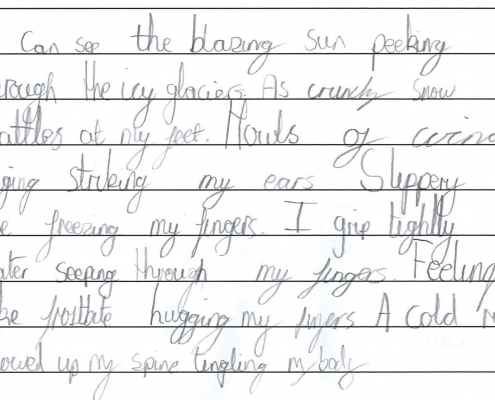 Can see the blazing sun peeking
rough the icy glaciers. As crunchy snow
attles at my feet. Howls of wind
ging striking my ears Slippery
e freezing my fingers. I grip tightly
ater seeping through my fingers. Feeling
ke frostbite hugging my fingers A cold
owed up my spine tingling my body